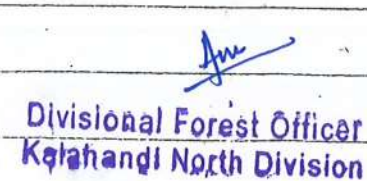 Divisional Forest Officer
Kalahandi North Division